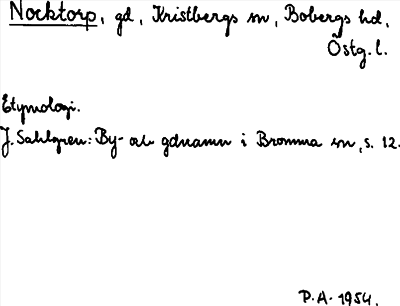 Nocktorp, gd, Kristbergs sn, Bobergs hd,
Östg. l.
Etymologi.
J. Sahlgren: By- och gdnamn i Bromma sn, s. 12.
P.A. 1954.